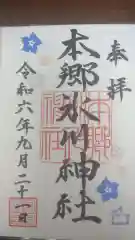 奉拝
本郷氷川神社
令和六年九月二十一日